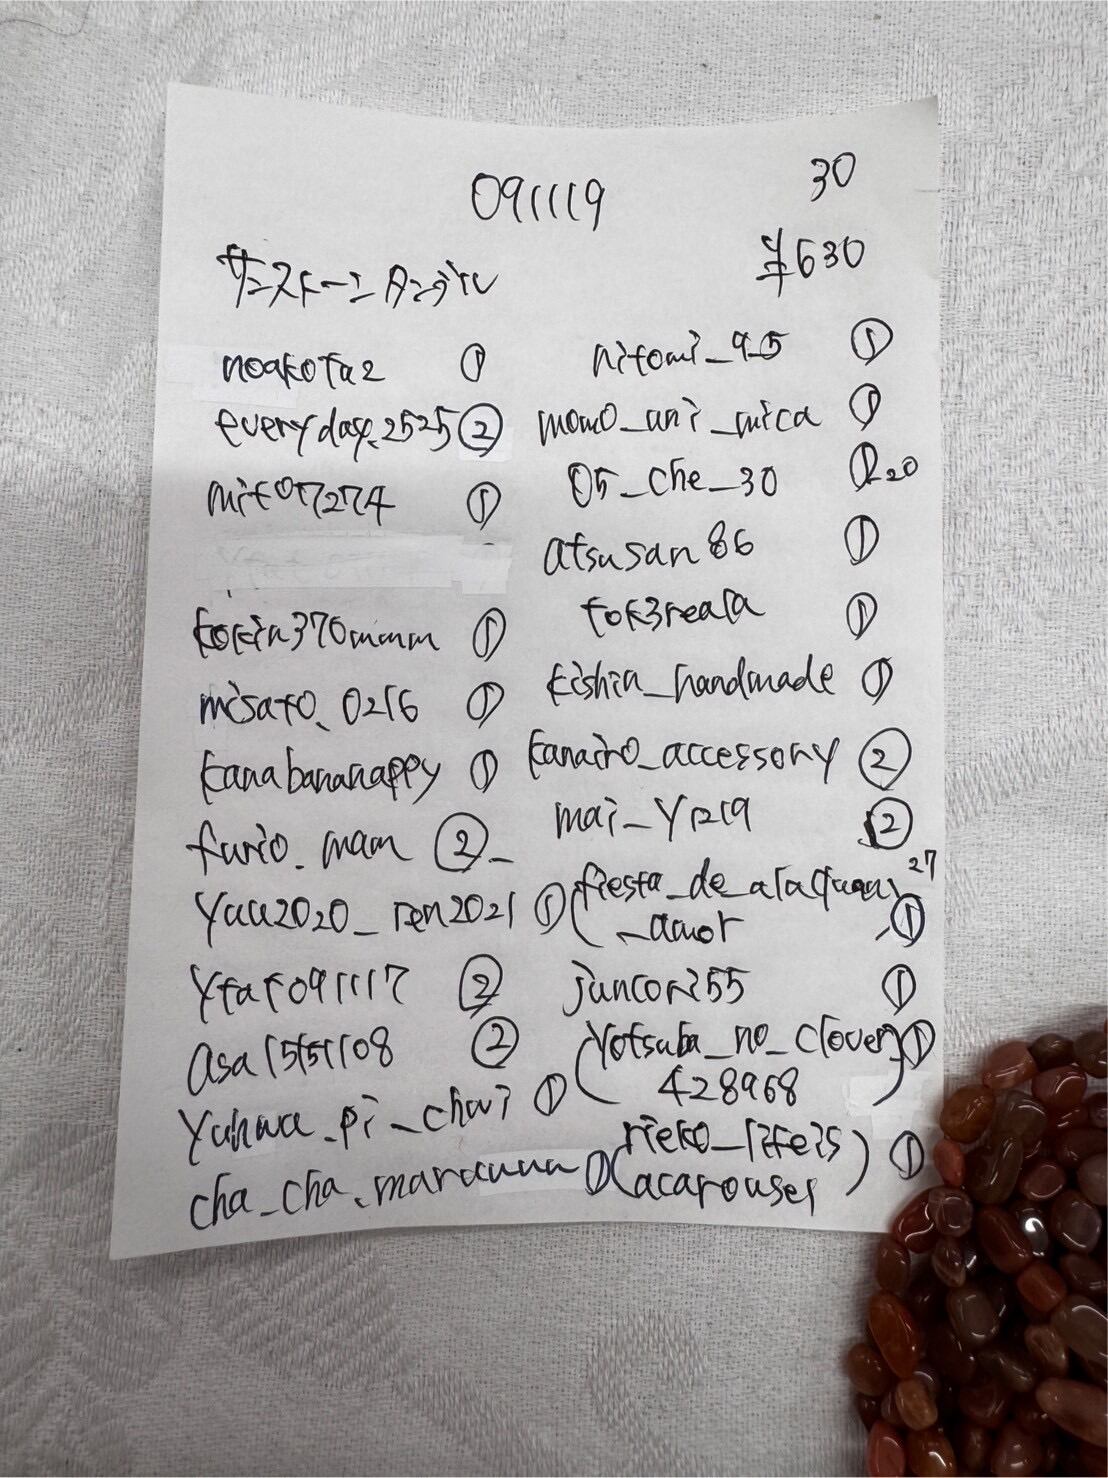 091119
30
サンストーンタンブル
¥630
noakota2 ①
everyday.2525 ②
mito7274 ①
kokin370mmm ①
misato_0216 ①
kanabananappy ①
furio_mam ②
yuu2020_ren2021 ①
ytat091117 ②
asa15151108 ②
yuhua_pi_chai ①
cha_cha_marauuuu ①
hitomi_95 ①
momo_uni_mica ①
05_che_30 ① 20
atsusan86 ①
tok3reala ①
kishin_handmade ①
kanairo_accessory ②
mai_y1219 ②
27
(fiesta_de_
_amor ①
juncori255 ①
(yotsuba_no_clover ①
428968)
(rieko_lifeis ①
acarousel)